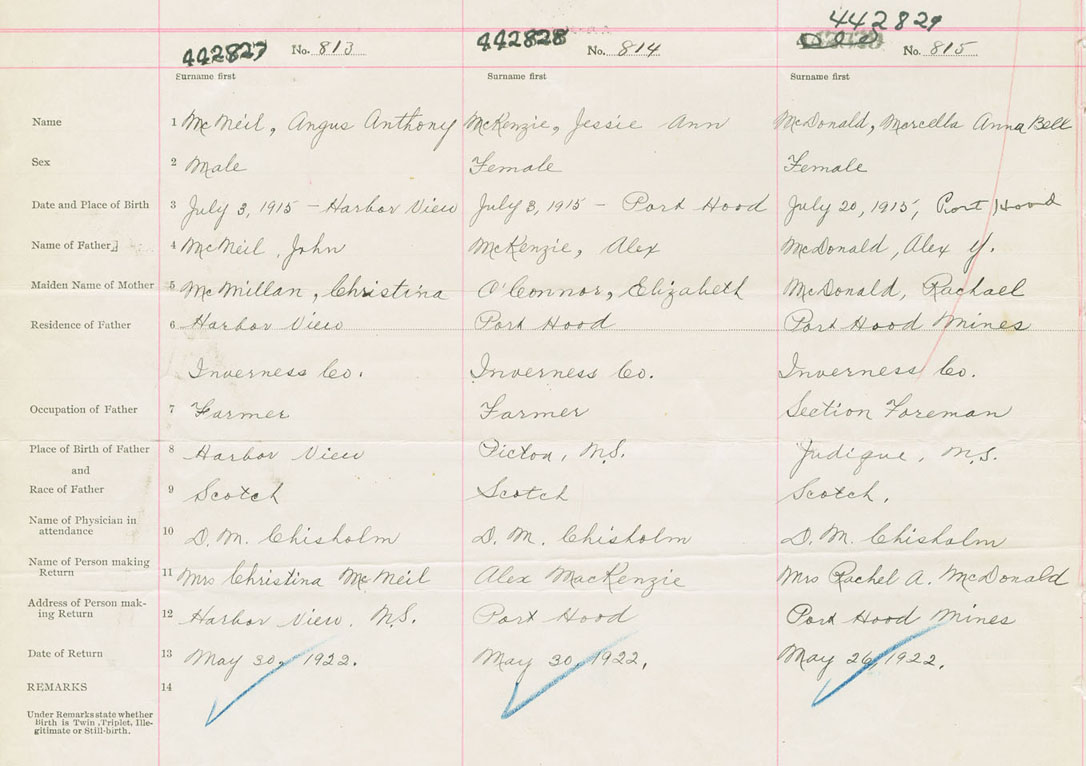 442827 No. 813 442828 No. 814 442829 No. 815
Surname first Surname first Surname first
Name 1 McNeil, Angus Anthony McKenzie, Jessie Ann McDonald, Marcella Anna Bell
Sex 2 Male Female Female
Date and Place of Birth 3 July 3, 1915 - Harbor View July 8, 1915 - Port Hood July 20, 1915, Port Hood
Name of Father 4 McNeil, John McKenzie, Alex McDonald, Alex Y.
Maiden Name of Mother 5 McMillan, Christina O'Connor, Elizabeth McDonald, Rachael
Residence of Father 6 Harbor View Port Hood Port Hood Mines
Inverness Co. Inverness Co. Inverness Co.
Occupation of Father 7 Farmer Farmer Section Foreman
Place of Birth of Father 8 Harbor View Pictou, N.S. Judique, N.S.
and
Race of Father 9 Scotch Scotch Scotch.
Name of Physician in
attendance 10 D. M. Chisholm D. M. Chisholm D. M. Chisholm
Name of Person making
Return 11 Mrs Christina McNeil Alex MacKenzie Mrs Rachel A. McDonald
Address of Person mak-
ing Return 12 Harbor View, N.S. Port Hood Port Hood Mines
Date of Return 13 May 30, 1922. May 30, 1922. May 26, 1922.
REMARKS 14
Under Remarks state whether
Birth is Twin, Triplet, Ille-
gitimate or Still-birth.